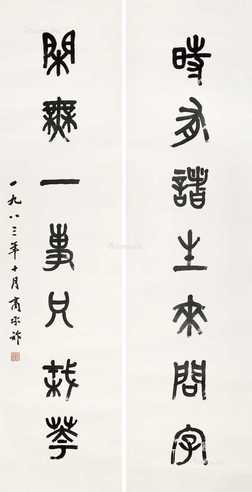 時有諸生來問字
閑無一事只栽華
一九八三年十月商承祚